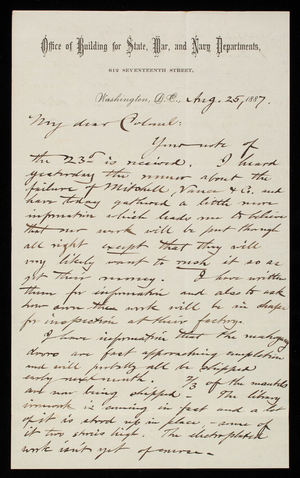 Office of Building for State, War, and Navy Departments,
612 SEVENTEENTH STREET,
Washington, D.C., Aug. 25, 1887.
My dear Colonel:
Your note of
the 23d is received. I heard
yesterday the rumor about the
failure of Mitchell Vance & Co. and
have today gathered a little more
information which leads me to believe
that our work will be put through
all right except that they will
very likely want to rush it so as
get their money. I have written
them for information and also to ask
how soon their work will be in shape
for inspection at their factory.
I have information that the mahogany
doors are fast approaching completion
and will probably all be shipped
early next month. 2/3 of the mantels
are now being shipped - The library
ironwork is coming in fast and a lot
of it is stood up in place - some of
it two stories high. The electroplated
work isn't yet of course -